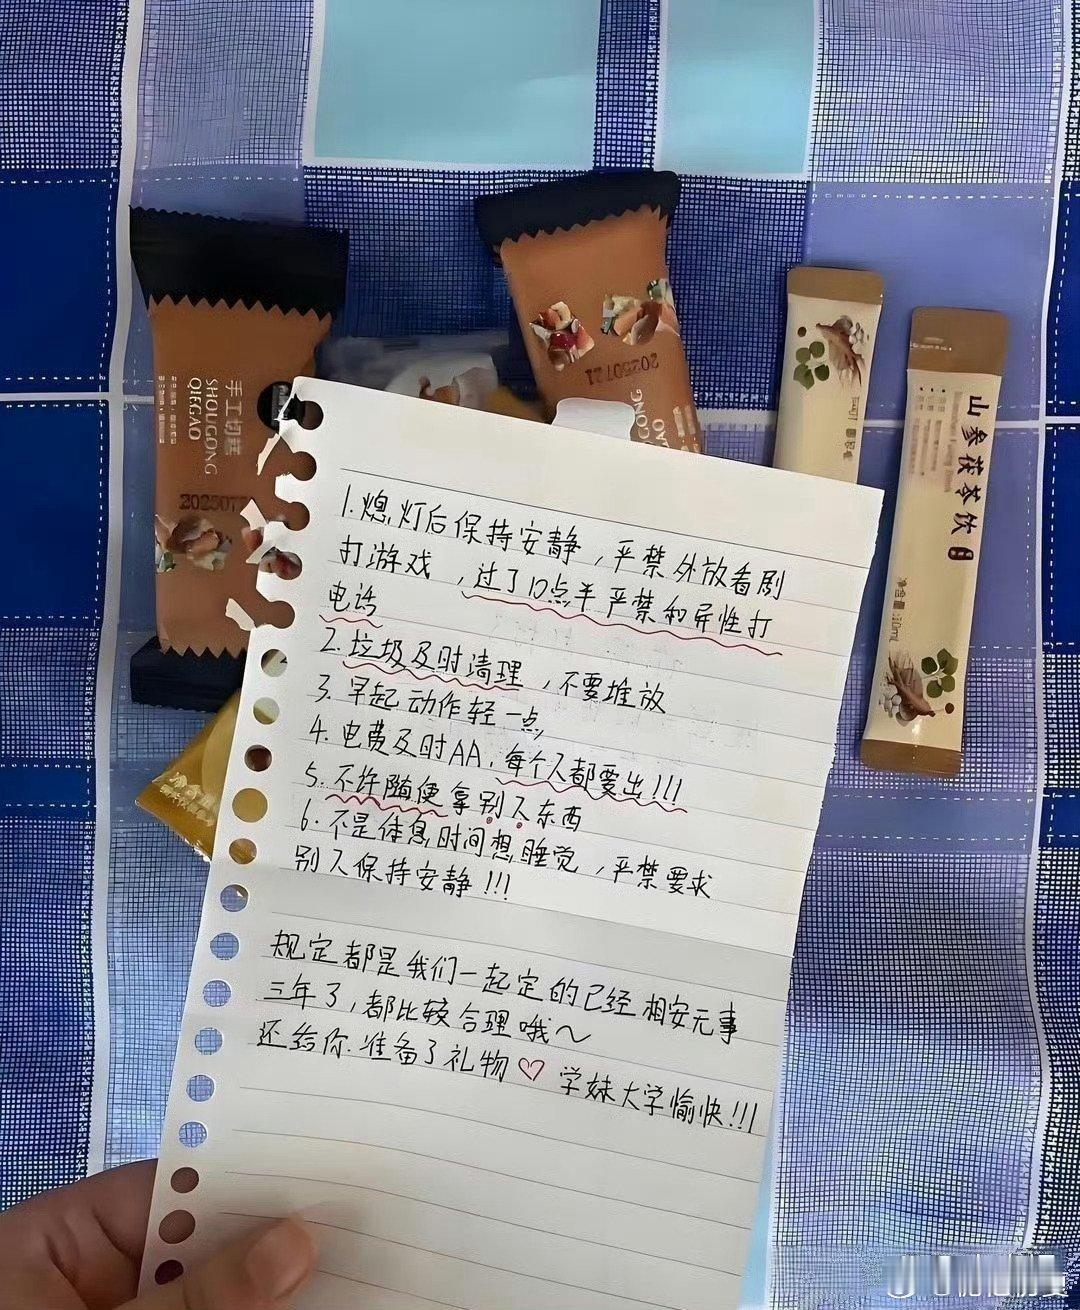 手工切糕
SHOUGONG
QIEGAO
20250721
山参茯苓饮
净含量:10mL
1.熄灯后保持安静，严禁外放看剧
打游戏，过了10点半严禁和异性打
电话
2.垃圾及时清理，不要堆放
3.早起动作轻一点
4.电费及时AA，每个人都要出!!!
5.不许随便拿别人东西
6.不是休息时间想睡觉，严禁要求
别人保持安静!!!
规定都是我们一起定的已经相安无事
三年了，都比较合理哦~
还给你准备了礼物♡ 学妹大学愉快!!!